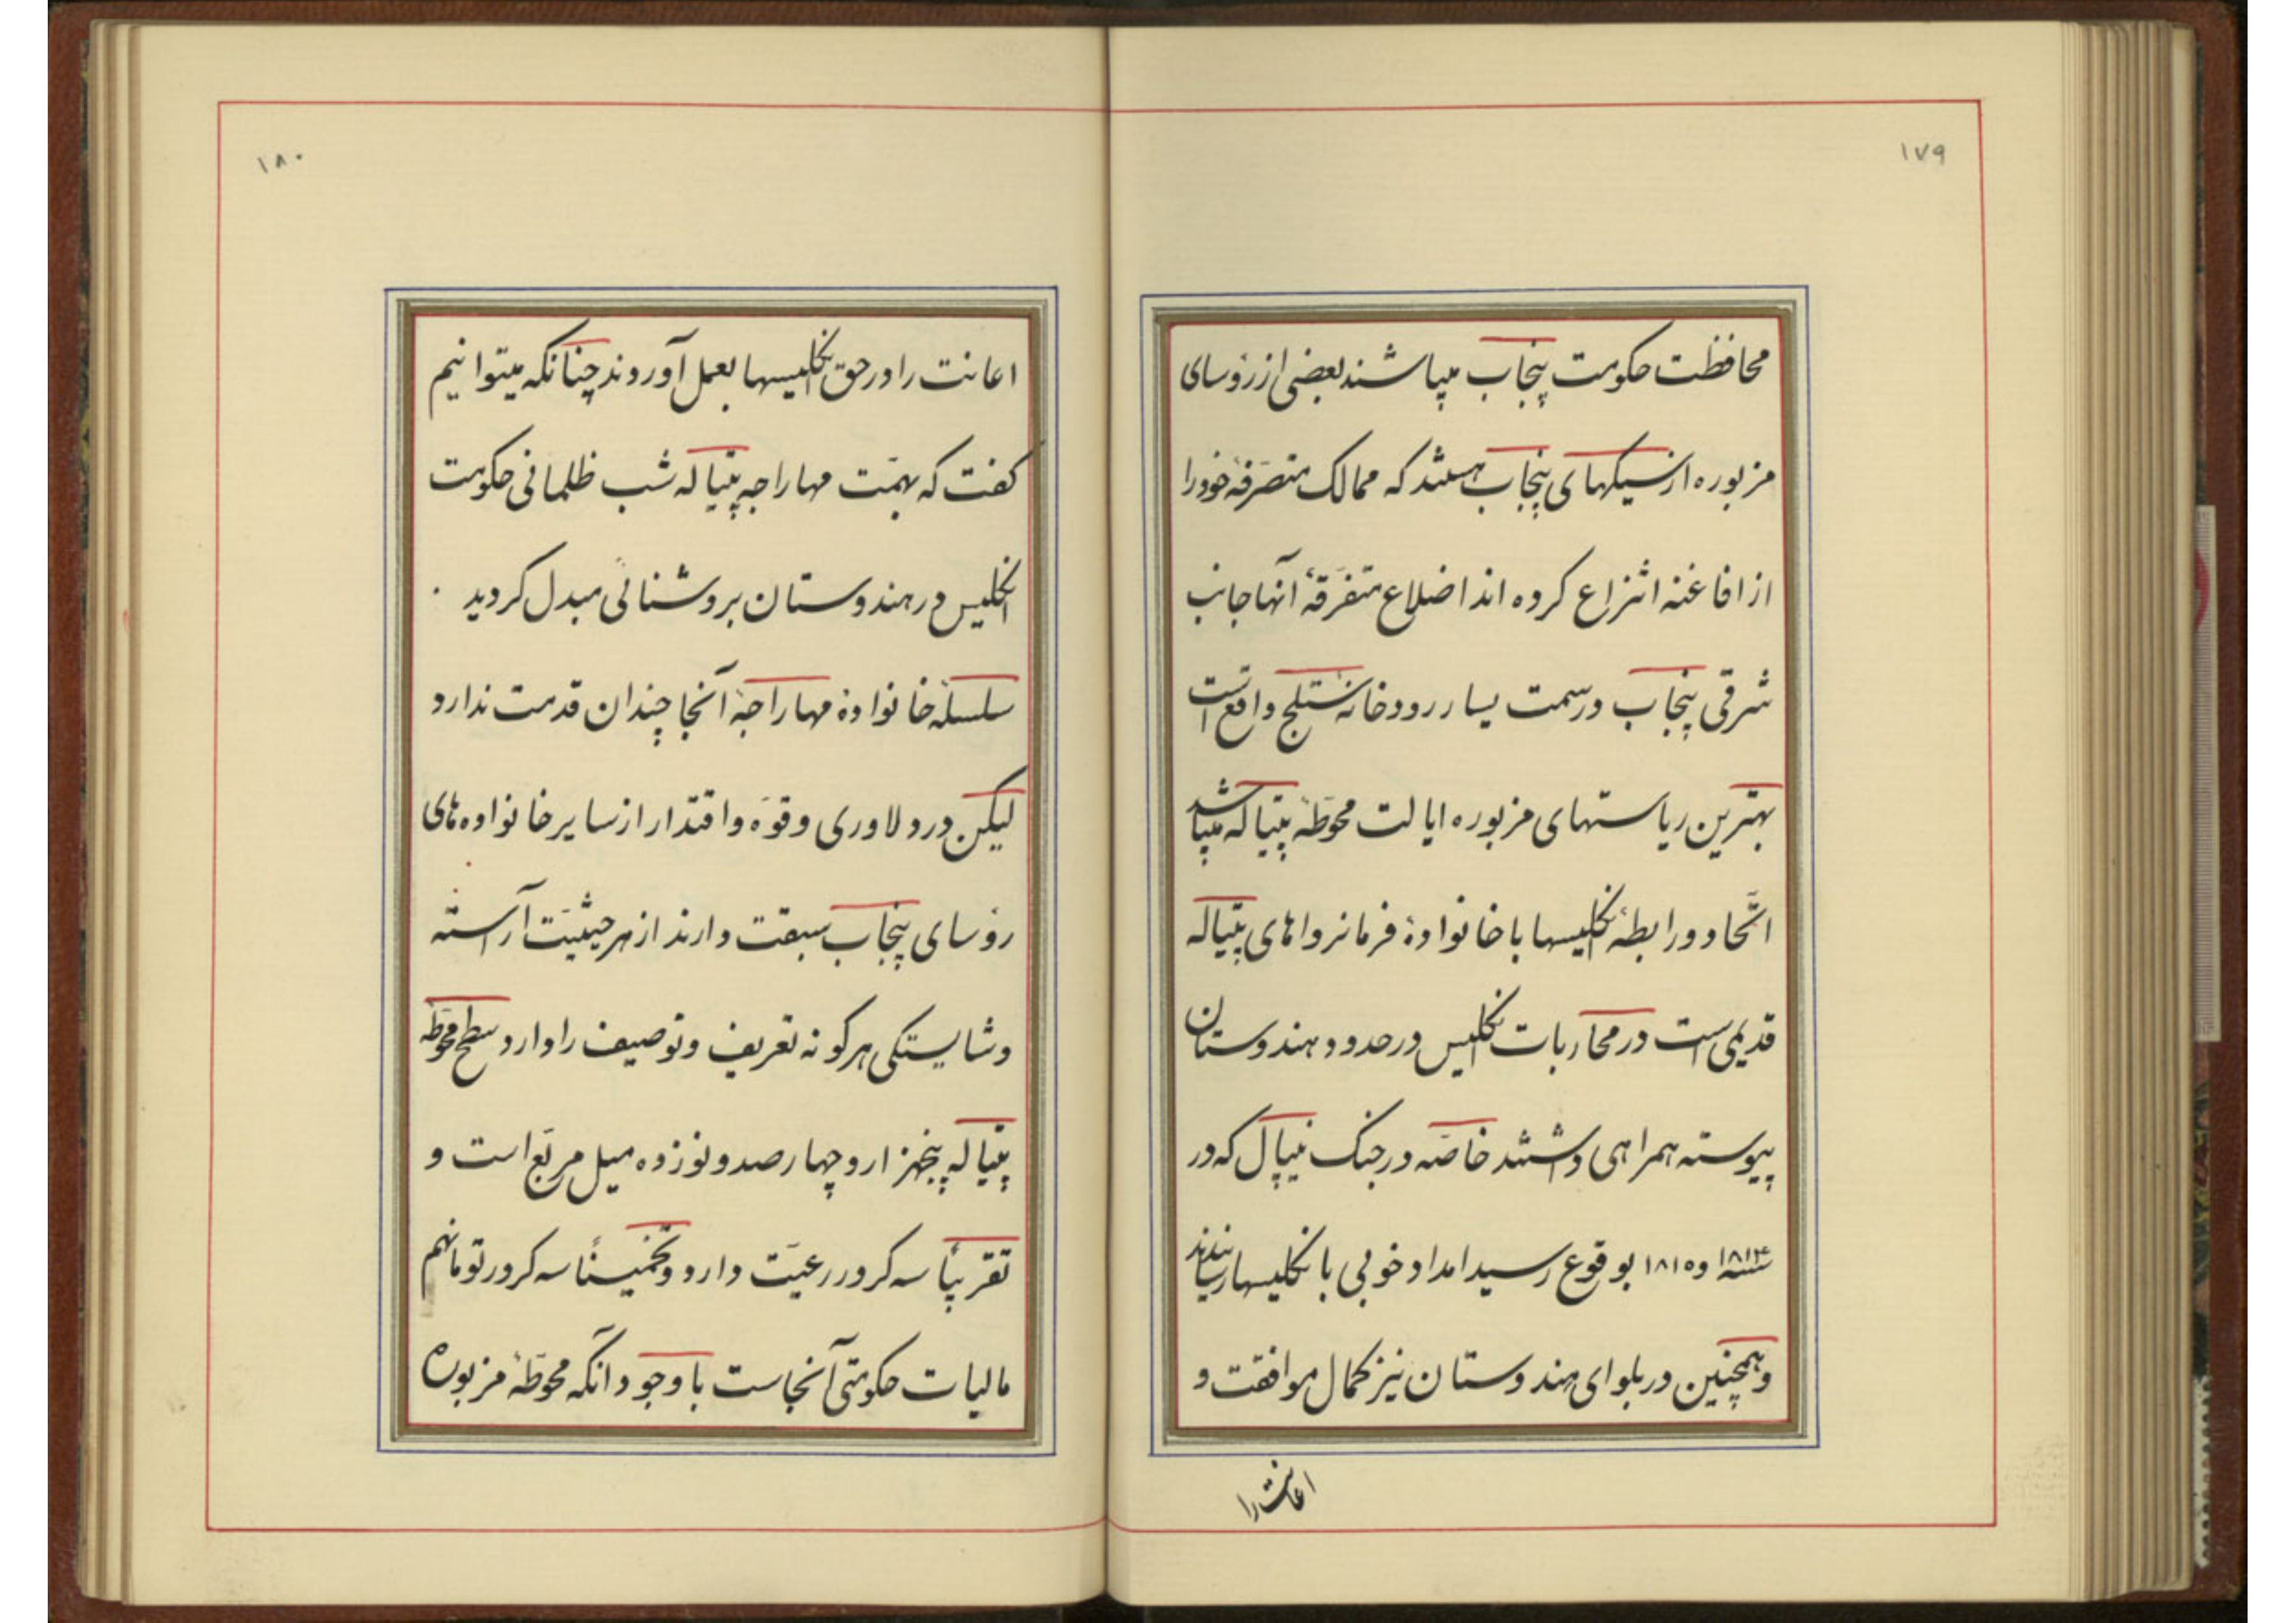 ۱۷۹
محافظت حکومت پنجاب میباشند بعضی از رؤسای
مزبوره از سیکهای پنجاب هستند که ممالک متصرفهٔ خود را
از افاغنه انتزاع کرده اند اضلاع متفرقهٔ آنها جانب
شرقی پنجاب در سمت یسار رودخانهٔ ستلج واقع است
بهترین ریاستهای مزبوره ایالت محوطهٔ پتیاله میباشد
اتّحاد و رابطهٔ انکلیسها با خانوادهٔ فرمانرواهای پتیاله
قدیمی است در محاربات انکلیس در حدود هندوستان
پیوسته همراهی داشتند خاصّه در جنک نیپال که در
سنه ۱۸۱۴ و ۱۸۱۵ بوقوع رسید امداد خوبی بانکلیسها رسانیدند
و همچنین در بلوای هندوستان نیز کمال موافقت و
اعانت را
۱۸۰
اعانت را در حق انکلیسها بعمل آوردند چنانکه میتوانیم
کفت که بهمّت مهاراجه پتیاله شب ظلمانی حکومت
انکلیس در هندوستان بروشنائی مبدل کردید .
سلسلهٔ خانوادهٔ مهاراجهٔ آنجا چندان قدمت ندارد
لیکن در دلاوری و قوّه و اقتدار از سایر خانواده های
رؤسای پنجاب سبقت دارند از هر حیثیّت آراسته
و شایستکی هرکونه تعریف و توصیف را دارد سطح محوطهٔ
پتیاله پنجهزار و چهارصد و نوزده میل مربّع است و
تقریباً سه کرور رعیّت دارد و تخمیناً سه کرور تومانهم
مالیات حکومتی آنجاست با وجود آنکه محوطهٔ مزبوره